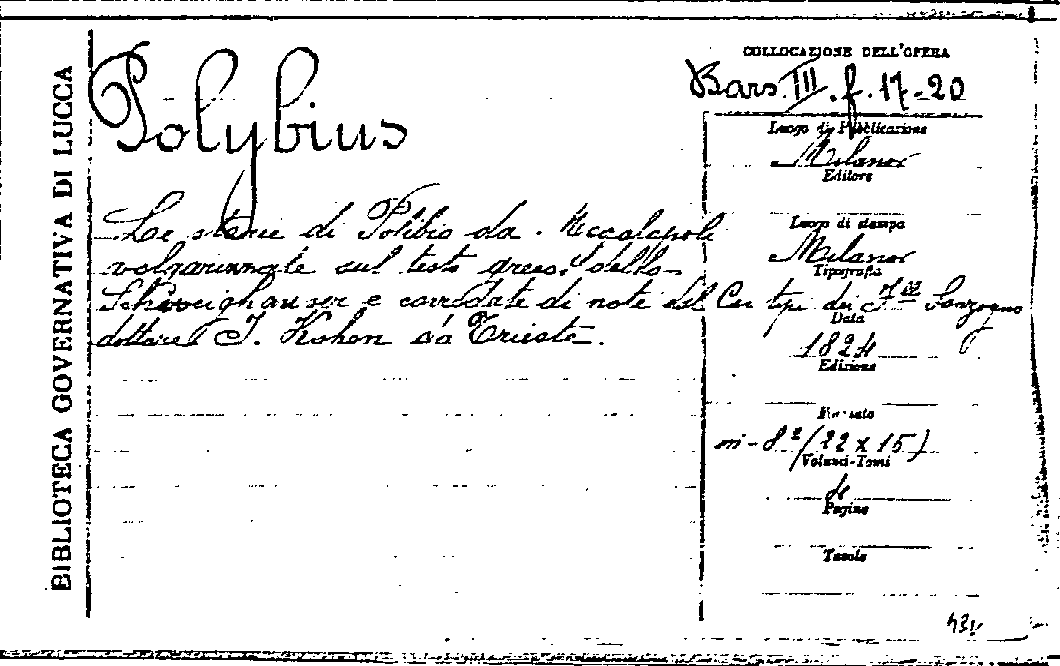 BIBLIOTECA GOVERNATIVA DI LUCCA
Polybius
Le storie di Polibio da Megalopoli
volgarizzate sul testo greco dello
Schweighauser e corredate di note dal
dottore I. Kohen da Trieste.
COLLOCAZIONE DELL'OPERA
Bars. III. f. 17-20
Luogo di Pubblicazione
Milano
Editore
Luogo di stampa
Milano
Tipografia
Co' tipi dei Sonzogno
Data
1824
Edizione
Formato
in-8° (22 x 15)
Volumi-Tomi
4
Pagine
Tavole